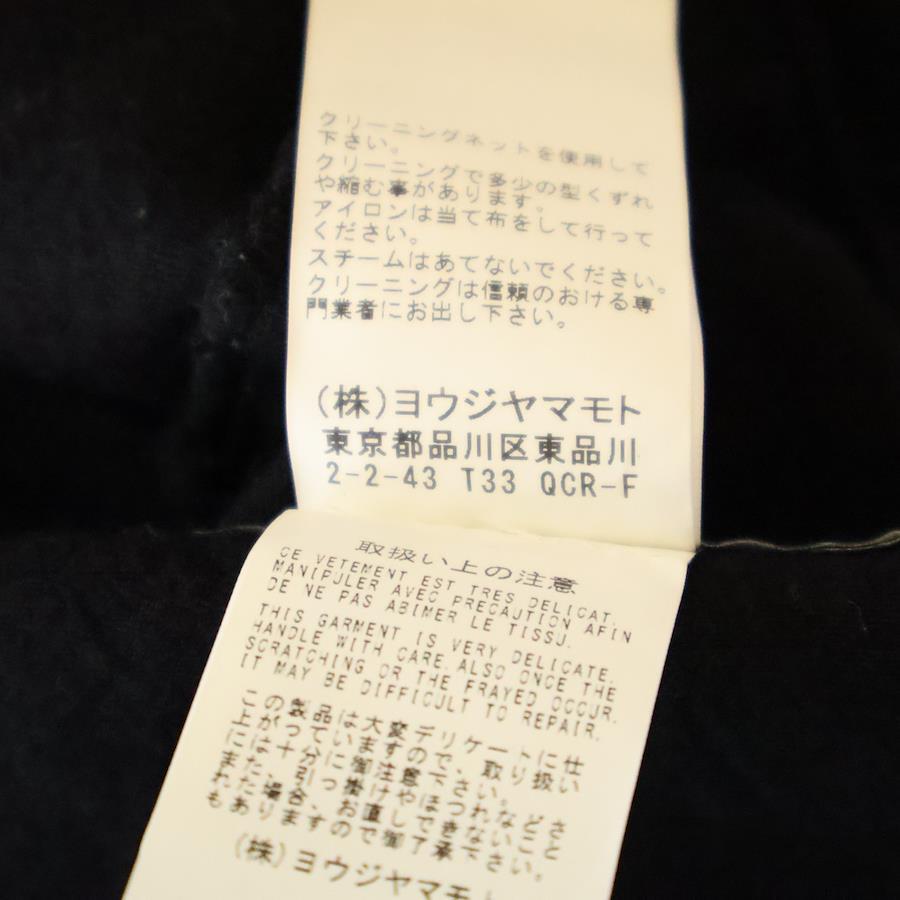 クリーニングネットを使用して
下さい。
クリーニングで多少の型くずれ
や縮む事があります。
アイロンは当て布をして行って
ください。
スチームはあてないでください。
クリーニングは信頼のおける専
門業者にお出し下さい。
(株)ヨウジヤマモト
東京都品川区東品川
2-2-43 T33 QCR-F
取扱い上の注意
CE VETEMENT EST TRES DELICAT.
MANIPULER AVEC PRECAUTION AFIN
DE NE PAS ABIMER LE TISSU.
THIS GARMENT IS VERY DELICATE.
HANDLE WITH CARE. ALSO ONCE THE
SCRATCHING OR THE FRAYED OCCUR.
IT MAY BE DIFFICULT TO REPAIR.
この製品は大変デリケートに仕
上がっていますので、取り扱い
には十分に御注意下さい。
また、引っ掛けやほつれなどさ
れた場合、お直しできないこと
もありますので御了承下さい。
(株)ヨウジヤマモト